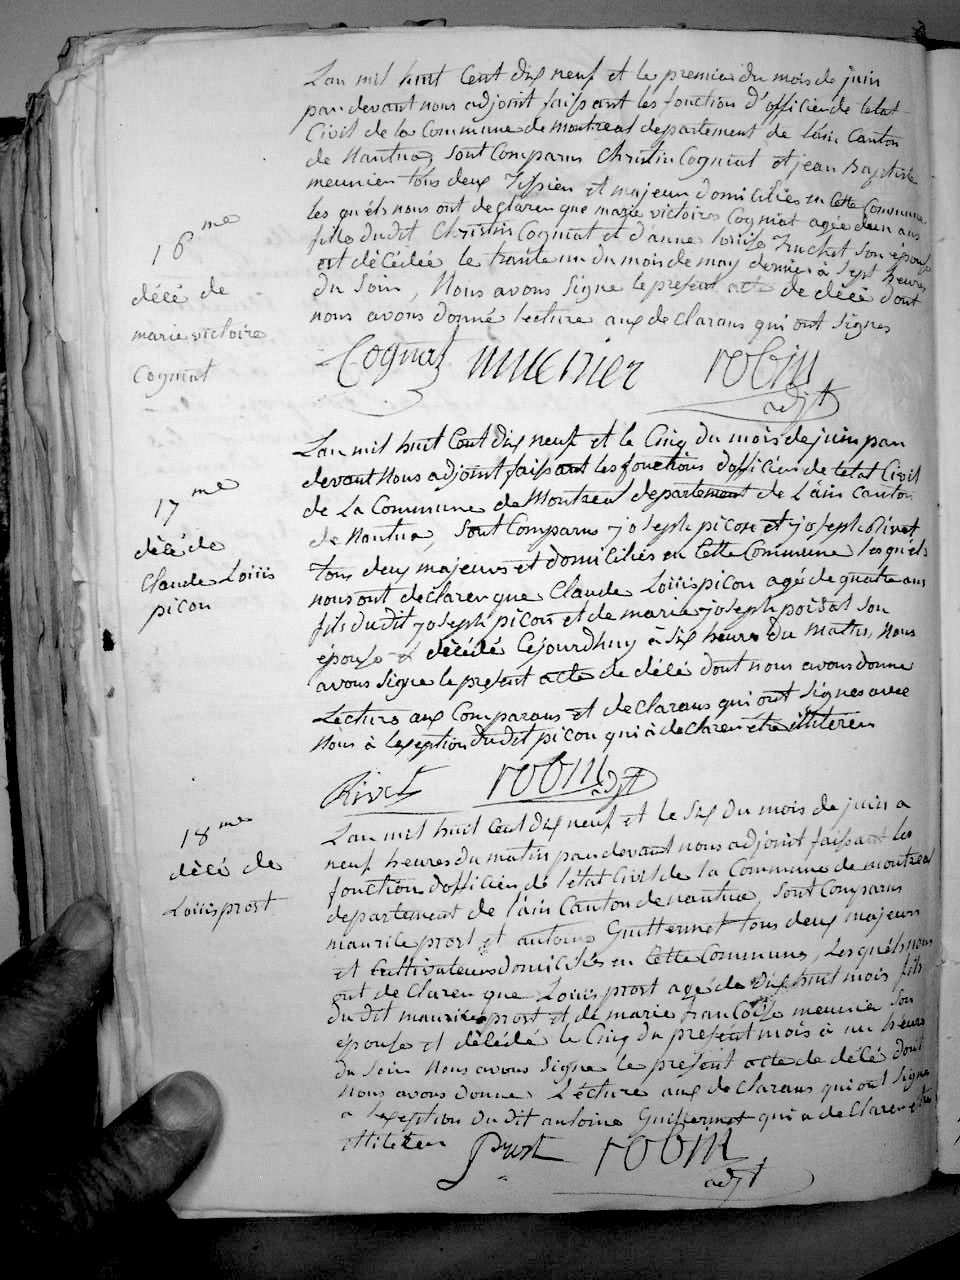 16me
décé de
marie victoire
Cogniat
L'an mil huit Cent dix neuf et le premier du mois de juin
pardevant nous adjoint faissant les fonction d'officier de letat
Civil de la Commune de montreal departement de l'ain Canton
de Nantua, sont Comparus Christin Cogniat et jean Baptiste
meunier tous deux et majeur domiciliés en Cette Commune
les quéls nous ont declarer que marie victoire Cogniat agée d'un ans
fille du dit Christin Cogniat et d'anne louise Truchet son épouse
est décédée le trante un du mois de may dernier à sept heures
du soir, Nous avons signe le present acte de décé dont
nous avons donné lecture aux declarans qui ont signes
Cogniat munier robin
adjt
17me
décé de
Claude Louis
picon
L'an mil huit Cent dix neuf et le Cinq du mois de juin par
devant Nous adjoint faissant les fonctions d'officier de letat Civil
de La Commune de Montreal departement de L'ain Canton
de Nantua, sont Comparus joseph picon et joseph Rivet
tous deux majeurs et domiciliés en Cette Commune lesquéls
nous ont declarer que Claude Louis picon agé de quatre ans
fils du dit joseph picon et de marie joseph poisat son
épouse et décédé Cejourdhuy à six heures du matin, Nous
avons signe le present acte de décé dont nous avons donne
Lecture aux Comparans et declarans qui ont signes avec
Nous à lexeption du dit picon qui à declarer etre illiteren
Rivet robin adjt
18me
décé de
Louis prost
L'an mil huit Cent dix neuf et le six du mois de juin a
neuf heures du matin pardevant nous adjoint faissant les
fonction d'officier de l'état Civil de la Commune de montreal
departement de l'ain Canton de nantua, sont Comparus
maurice prost et antoine Guillermet tous deux majeurs
et Cultivateurs domiciliés en Cette Commune, Lesquéls nous
ont declarer que Louis prost agé de dix huit mois fils
du dit maurice prost et de marie françoise meunier son
épouse et décédé le Cinq du present mois à un heure
du soir Nous avons signe le present acte de décé dont
Nous avons donne Lécture aux declarans qui ont signe
a lexeption du dit antoine Guillermet qui a declarer etre
illiteren prost robin
adjt